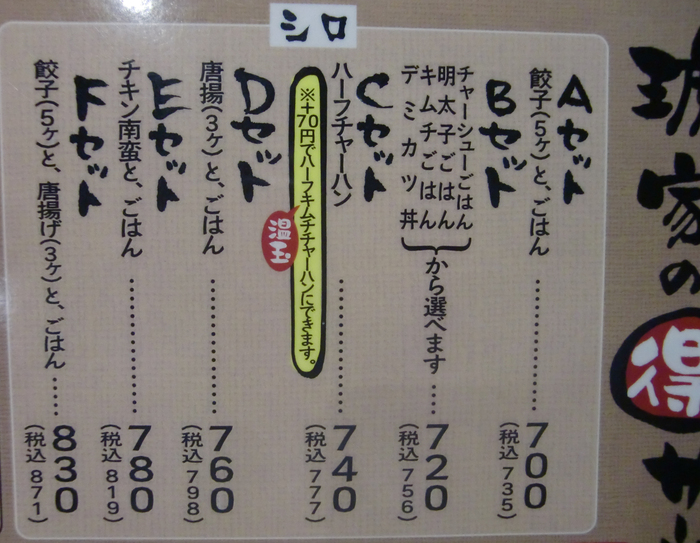 家の
得
シロ
Aセット
餃子(5ヶ)と、ごはん……700
(税込735)
Bセット
チャーシューごはん
明太子ごはん
キムチごはん
デミカツ丼
から選べます…720
(税込756)
Cセット
ハーフチャーハン……740
(税込777)
※+70円でハーフキムチチャーハンにできます。
温玉
Dセット
唐揚(3ヶ)と、ごはん……760
(税込798)
Eセット
チキン南蛮と、ごはん……780
(税込819)
Fセット
餃子(5ヶ)と、唐揚げ(3ヶ)と、ごはん…830
(税込871)